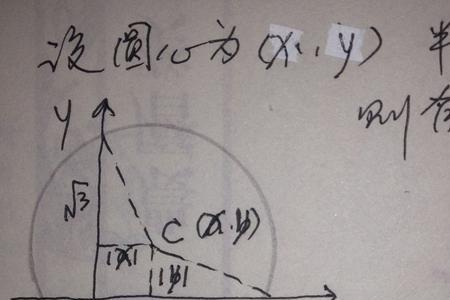 设圆心为(x,y) 半
则有
y
√3
C (x,y)
|x|
|y|